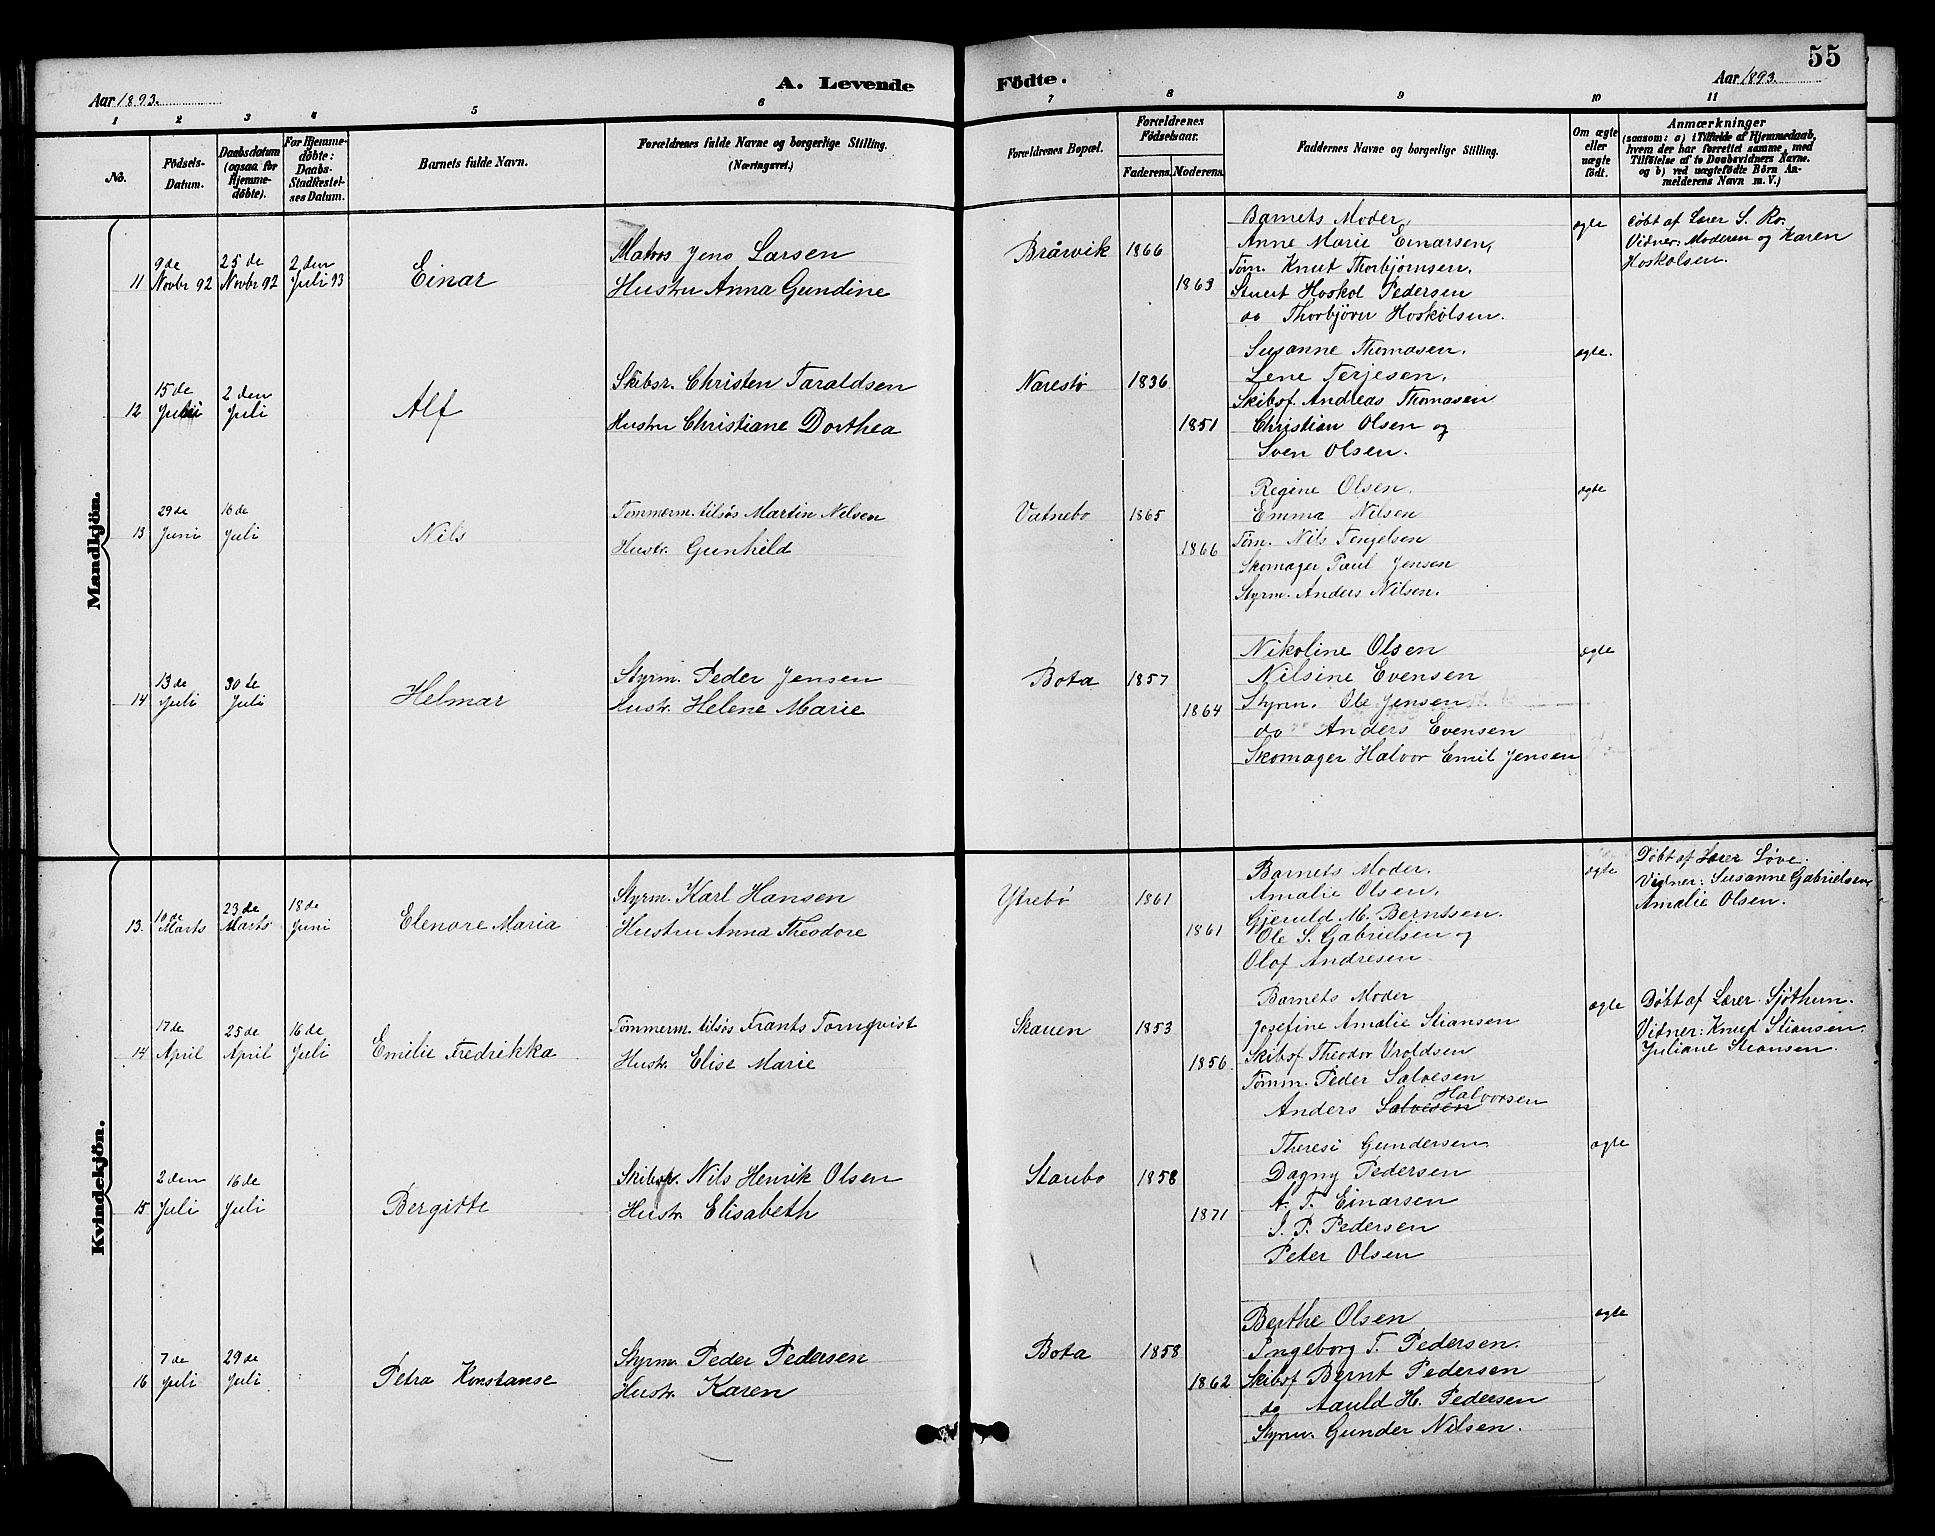 55
Aar 1893. A. Levende Födte. Aar 1893.
1 2 3 4 5 6 7 8 9 10 11
No.
Födsels-Datum.
Daabsdatum (ogsaa for Hjemmedöbte).
For Hjemmedöbte: Daabs-Stadfæstelses Datum.
Barnets fulde Navn.
Forældrenes fulde Navne og borgerlige Stilling.
(Næringsvei.)
Forældrenes Bopæl.
Forældrenes Födselsaar.
Faderens. Moderens.
Faddernes Navne og borgerlige Stilling.
Om ægte eller uægte födt.
Anmærkninger
(saasom: a) i Tilfælde af Hjemmedaab,
hvem der har forrettet samme, med
Tilföielse af to Daabsvidners Navne.
og b) ved uægtefödte Börn An-
melderens Navn m. V.)
Mandkjön.
11 9de Novbr 92 25de Novbr 92 2den Juli 93 Einar
Matros Jens Larsen
Hustru Anna Gundine
Bråsvik 1866 1863
Barnets Moder,
Anne Marie Einarsen,
Tøm. Knut Thorbjørnsen.
Stuert Hoskol Pedersen
do Thorbjørn Hoskolsen.
ægte
Døbt af Lærer S. Ro.
Vidner: Moderen og Karen
Hoskolsen.
12 15de Juni 2den Juli Alf
Skibsr. Christen Taraldsen
Hustru Christiane Dorthea
Narestø 1836 1851
Susanne Thomasen.
Lene Terjesen.
Skibsf. Andreas Thomasen
Christian Olsen og
Sven Olsen.
ægte.
13 29de Juni 16de Juli Nils
Tømmerm. tilsøs Martin Nilsen
Hustr. Gunhild
Vatnebo 1865 1866
Regine Olsen.
Emma Nilsen
Tøm. Nils Tengelsen
Skomager Paul Jensen
Styrm. Anders Nilsen.
ægte
14 13de Juli 30te Juli Helmar
Styrm. Peder Jensen
Hustr. Helene Marie
Bota 1857 1864
Nikoline Olsen
Nilsine Evensen
Styrm. Ole Jensen
do Anders Evensen
Skomager Halvor Emil Jensen
ægte
Kvindekjön.
13. 10de Marts 23de Marts 18de Juni Elenore Maria
Styrm. Karl Hansen
Hustru Anna Theodore
Ytrebø 1861 1861
Barnets Moder.
Amalie Olsen.
Gjeruld M. Berntsen.
Ole S. Gabrielsen og
Olaf Andresen
ægte
Døbt af Lærer Løve.
Vidner: Susanne Gabrielsen,
Amalie Olsen.
14 17de April 25de April 16de Juli Emilie Fredrikka
Tømmerm. tilsøs Frants Tornqvist
Hustr. Elise Marie
Skauen 1853 1856
Barnets Moder
Josefine Amalie Stiansen
Skibsf Theodor Uroldsen
Tømm. Peder Salvesen
Anders Salvesen Halvorsen
ægte
Døbt af Lærer Sjøthun.
Vidner: Knud Stiansen.
Juliane Stiansen.
15 2den Juli 16de Juli Bergitte
Skibsr. Nils Henrik Olsen
Hustr. Elisabeth
Staubo 1858 1871
Theresi Gundersen
Dagny Pedersen
A. T. Einarsen
J. P. Pedersen
Peter Olsen
ægte
16 7de Juli 29de Juli Petra Konstanse
Styrm. Peder Pedersen
Hustr. Karen
Bota 1858 1862
Berthe Olsen
Ingeborg T. Pedersen.
Skibsf Bernt Pedersen
do Aauld H. Pedersen
Styrm. Gunder Nilsen.
ægte